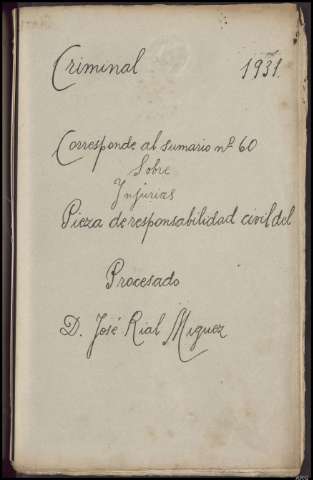 Criminal 1931.
Corresponde al sumario nº 60
Sobre
Injurias
Pieza de responsabilidad civil del
Procesado
D. José Rial Miguez